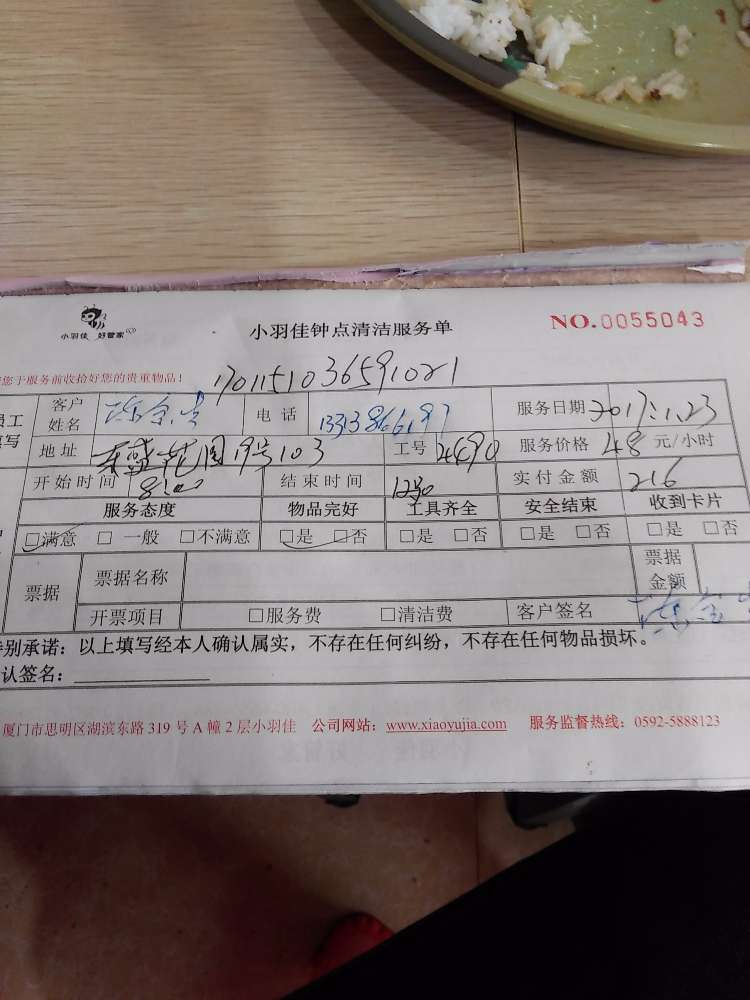 小羽佳 好管家
小羽佳钟点清洁服务单
NO.0055043
您于服务前收拾好您的贵重物品！
1701151036591021
员工
填写
客户
姓名
电话
服务日期 2017.1.23
地址 东盛花园19号103
工号 2490
服务价格 48 元/小时
开始时间 8:00
结束时间 12:30
实付金额 216
服务态度 物品完好 工具齐全 安全结束 收到卡片
□满意 □一般 □不满意 □是 □否 □是 □否 □是 □否 □是 □否
票据 票据名称 票据
金额
开票项目 □服务费 □清洁费 客户签名
特别承诺：以上填写经本人确认属实，不存在任何纠纷，不存在任何物品损坏。
认签名：
厦门市思明区湖滨东路 319 号 A 幢 2 层小羽佳 公司网站：www.xiaoyujia.com 服务监督热线：0592-5888123